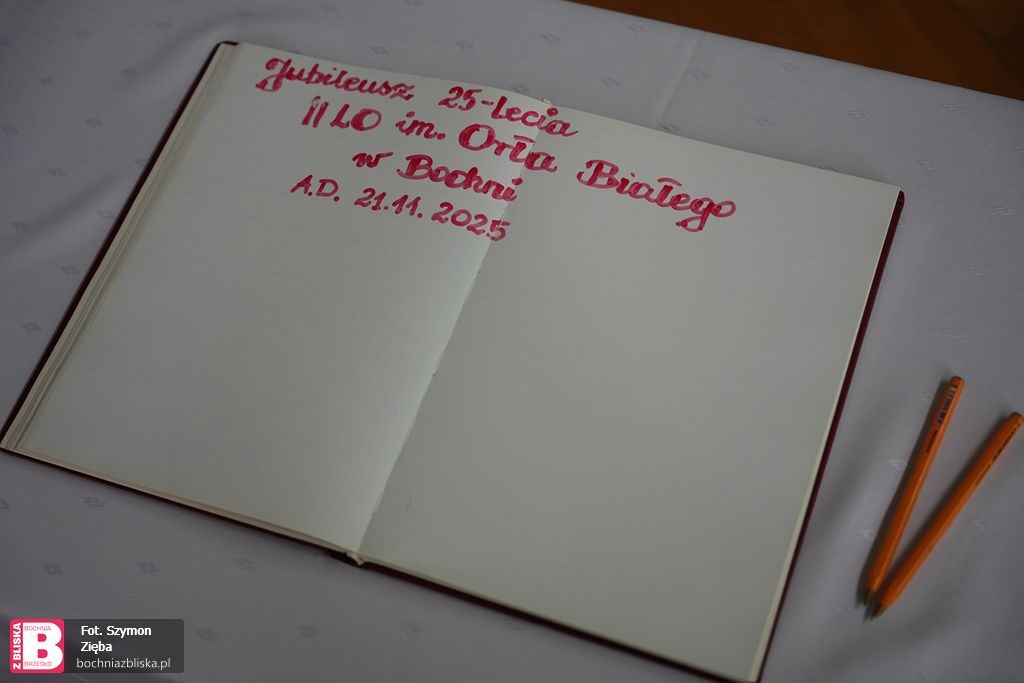 Jubileusz 25-lecia
II LO im. Orła Białego
w Bochni
A.D. 21.11.2025
Z BLISKA
BOCHNIA
B
BRZESKO
Fot. Szymon
Zięba
bochniazbliska.pl